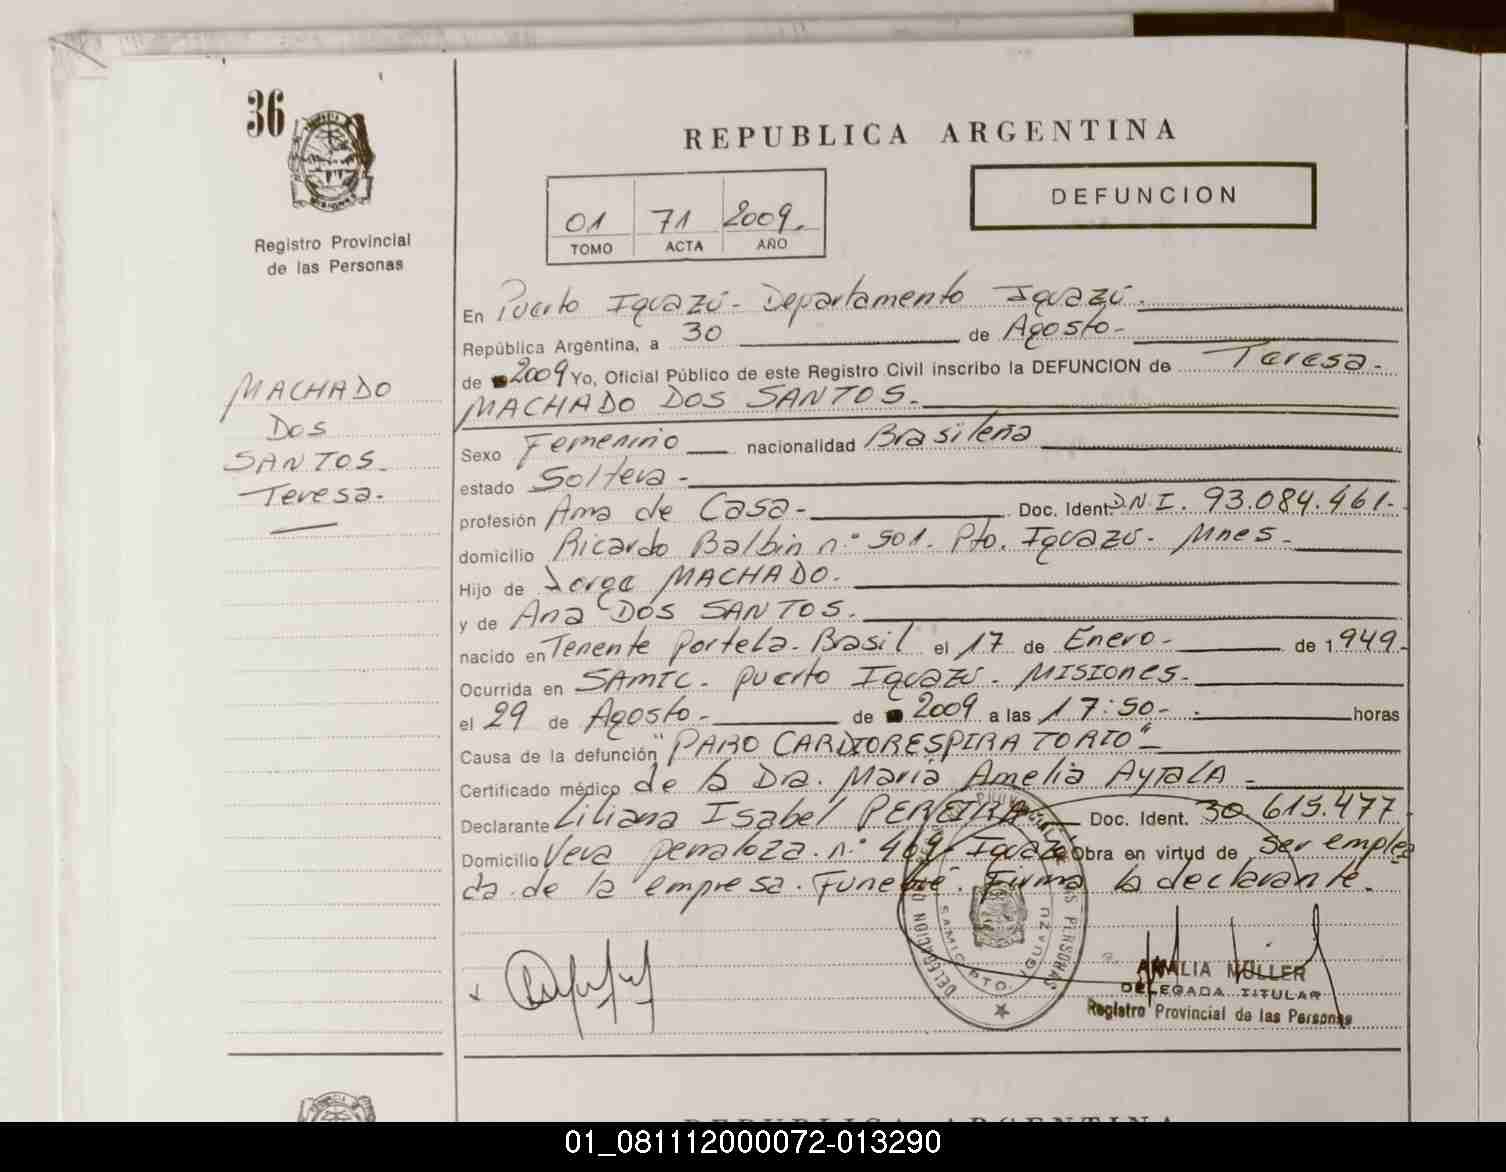 36
REPUBLICA ARGENTINA
DEFUNCION
01 71 2009.
TOMO ACTA AÑO
Registro Provincial
de las Personas
MACHADO
DOS
SANTOS.
Teresa.
En Puerto Iguazú - Departamento Iguazú.
República Argentina, a 30 de Agosto -
de 2009 Yo, Oficial Público de este Registro Civil inscribo la DEFUNCION de Teresa.
MACHADO DOS SANTOS.
Sexo Femenino nacionalidad Brasileña
estado Soltera -
profesión Ama de Casa - Doc. Ident. D.N.I. 93.084.461-
domicilio Ricardo Balbin n° 501. Pto. Iguazú - Mnes.
Hijo de Jorge MACHADO.
y de Ana DOS SANTOS.
nacido en Tenente Portela - Brasil el 17 de Enero - de 1949-
Ocurrida en SAMIC. Puerto Iguazú. MISIONES.
el 29 de Agosto - de 2009 a las 17:50 - horas
Causa de la defunción "PARO CARDIORESPIRATORIO"
Certificado médico de la Dra. Maria Amelia AYALA -
Declarante Liliana Isabel PEREIRA Doc. Ident. 30.615.477
Domicilio Vera Penaloza. n° 469 - Iguazú Obra en virtud de ser emplea
da. de la empresa. Funebre. Firma la declarante.
DELEGACION
S.A.M.I.C. PTO. IGUAZU
PERSONAS
AMALIA MÜLLER
DELEGADA TITULAR
Registro Provincial de las Personas
REPUBLICA ARGENTINA
01_081112000072-013290